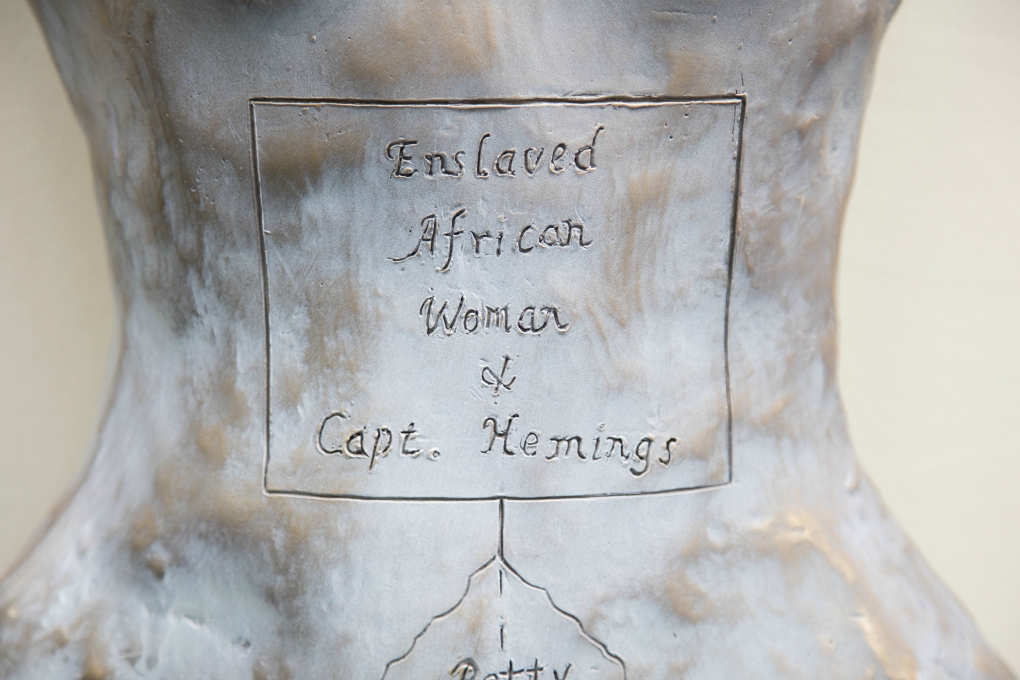 Enslaved
African
Woman
&
Capt. Hemings
Betty